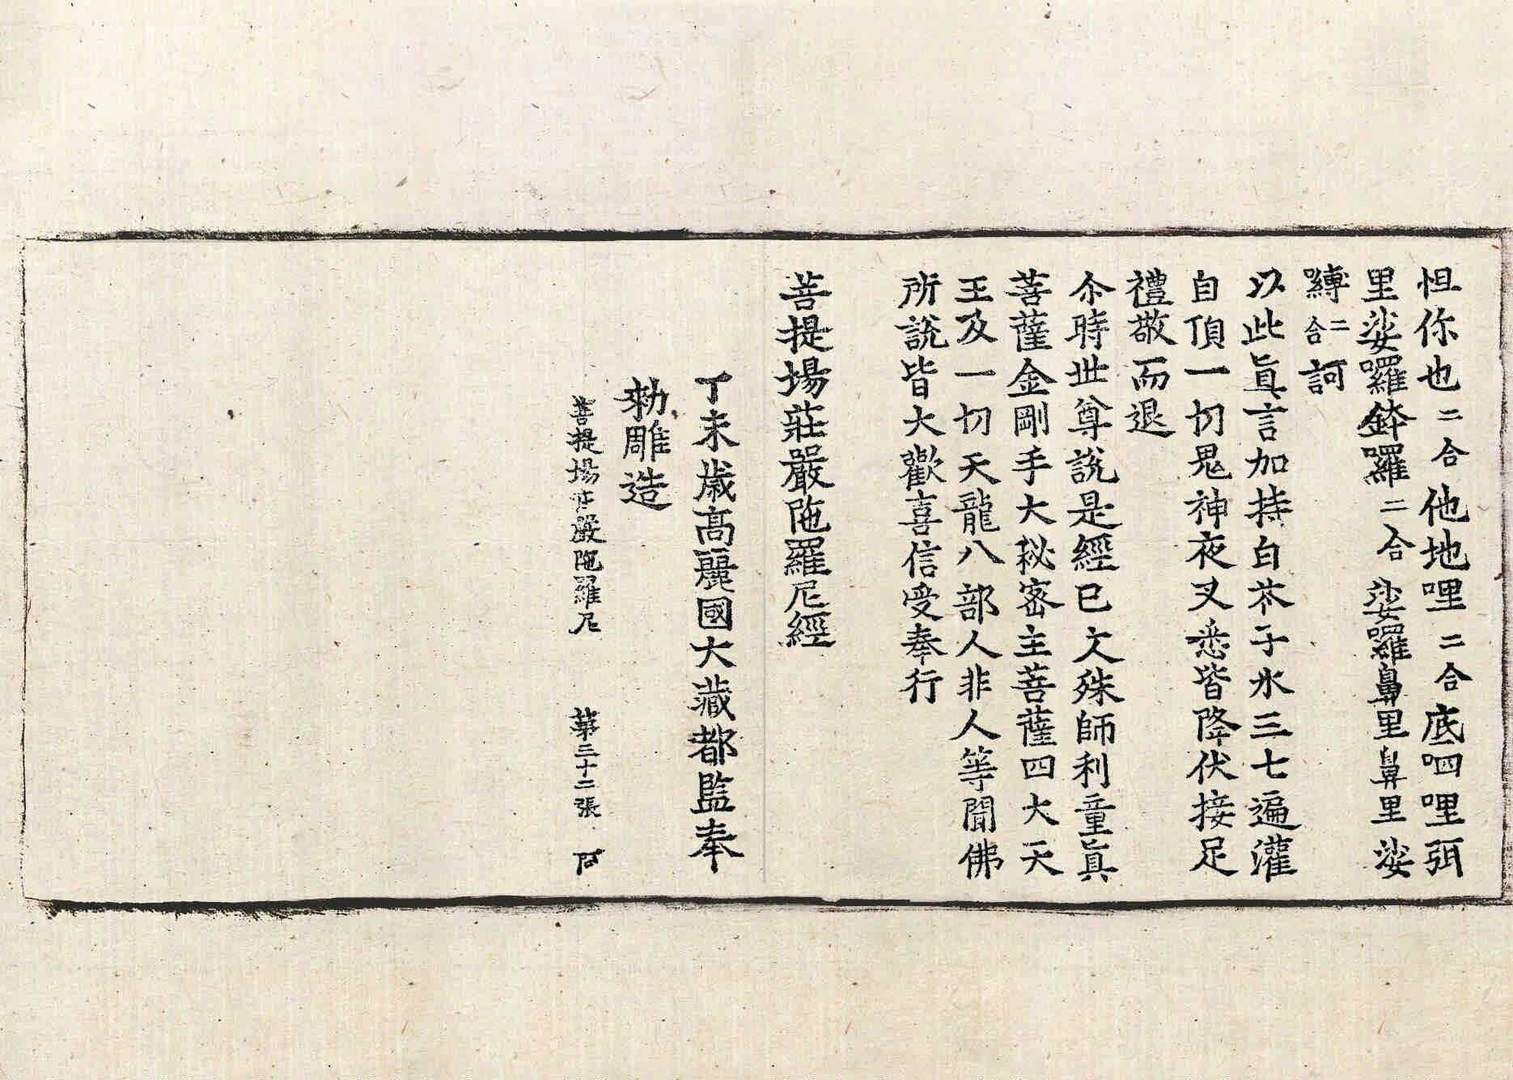 怛你也二合他地哩二合底呬哩弭
里娑囉鉢囉二合娑囉鼻里鼻里娑
嚩二合訶
以此眞言加持白芥子水三七遍灌
自頂一切鬼神夜叉悉皆降伏接足
禮敬而退
尒時世尊說是經已文殊師利童眞
菩薩金剛手大秘密主菩薩四大天
王及一切天龍八部人非人等聞佛
所說皆大歡喜信受奉行
菩提場莊嚴陁羅尼經
丁未歲高麗國大藏都監奉
勑雕造
菩提場莊嚴陁羅尼 第三十二張